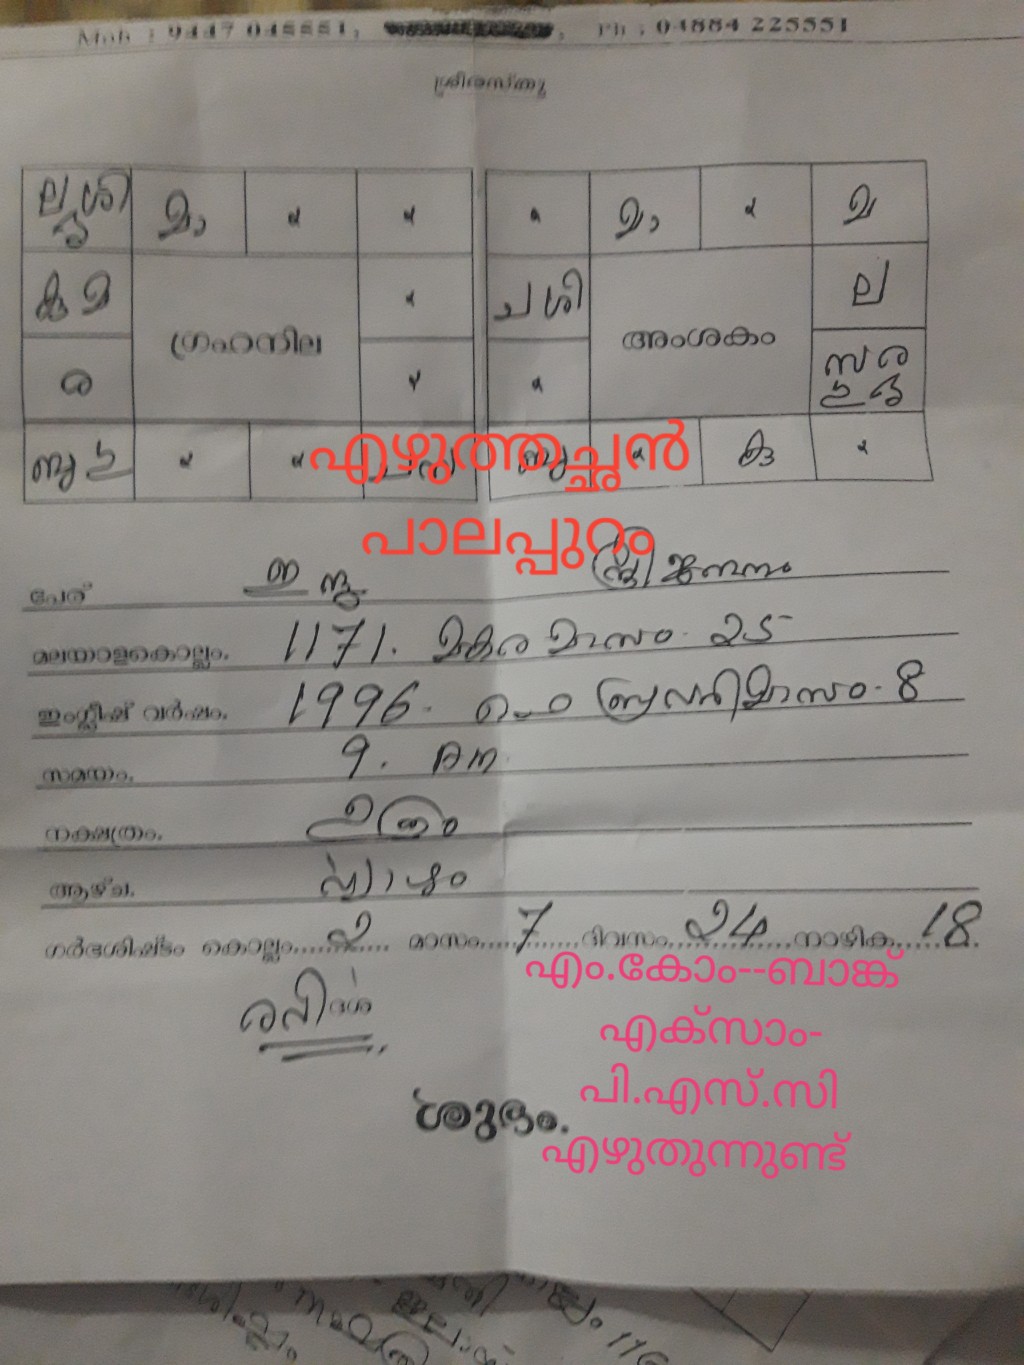 Mob : 9447 045551, Ph : 04884 225551
ശ്രീരസ്തു
ല ശി മാ x x
x മാ x മ
കു മ ഗ്രഹനില x
ച ശി അംശകം ല
ര x
x
ബു x x
ബു x കു x
എഴുത്തച്ഛൻ
പാലപ്പുറം
പേര് ഇന്ദു സ്ത്രീ ജനനം
മലയാളകൊല്ലം. 1171. മകര മാസം. 25
ഇംഗ്ലീഷ് വർഷം. 1996. ഫെബ്രുവരിമാസം. 8
സമയം. 9. Am
നക്ഷത്രം. ഉത്രം
ആഴ്ച. വ്യാഴം
ഗർഭശിഷ്ടം കൊല്ലം......2.... മാസം.....7......ദിവസം......24......നാഴിക......18.
രവിദശ
ശുഭം.
എം.കോം--ബാങ്ക്
എക്സാം-
പി.എസ്.സി
എഴുതുന്നുണ്ട്